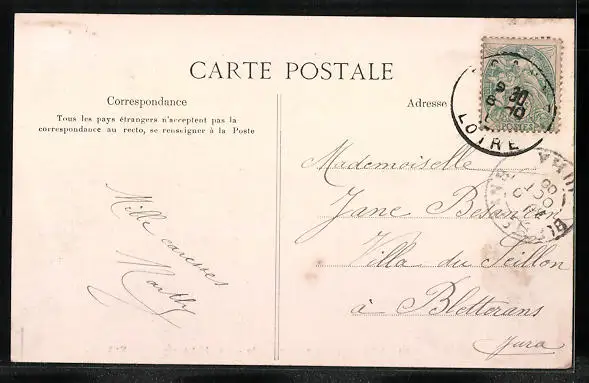 CARTE POSTALE
Correspondance
Tous les pays étrangers n'acceptent pas la
correspondance au recto, se renseigner à la Poste
Mille caresses
Adresse
Mademoiselle
Jane Besançon
Villa du Seillon
à Bletterans
Jura
POSTES
9 30
LOIRE
JURA